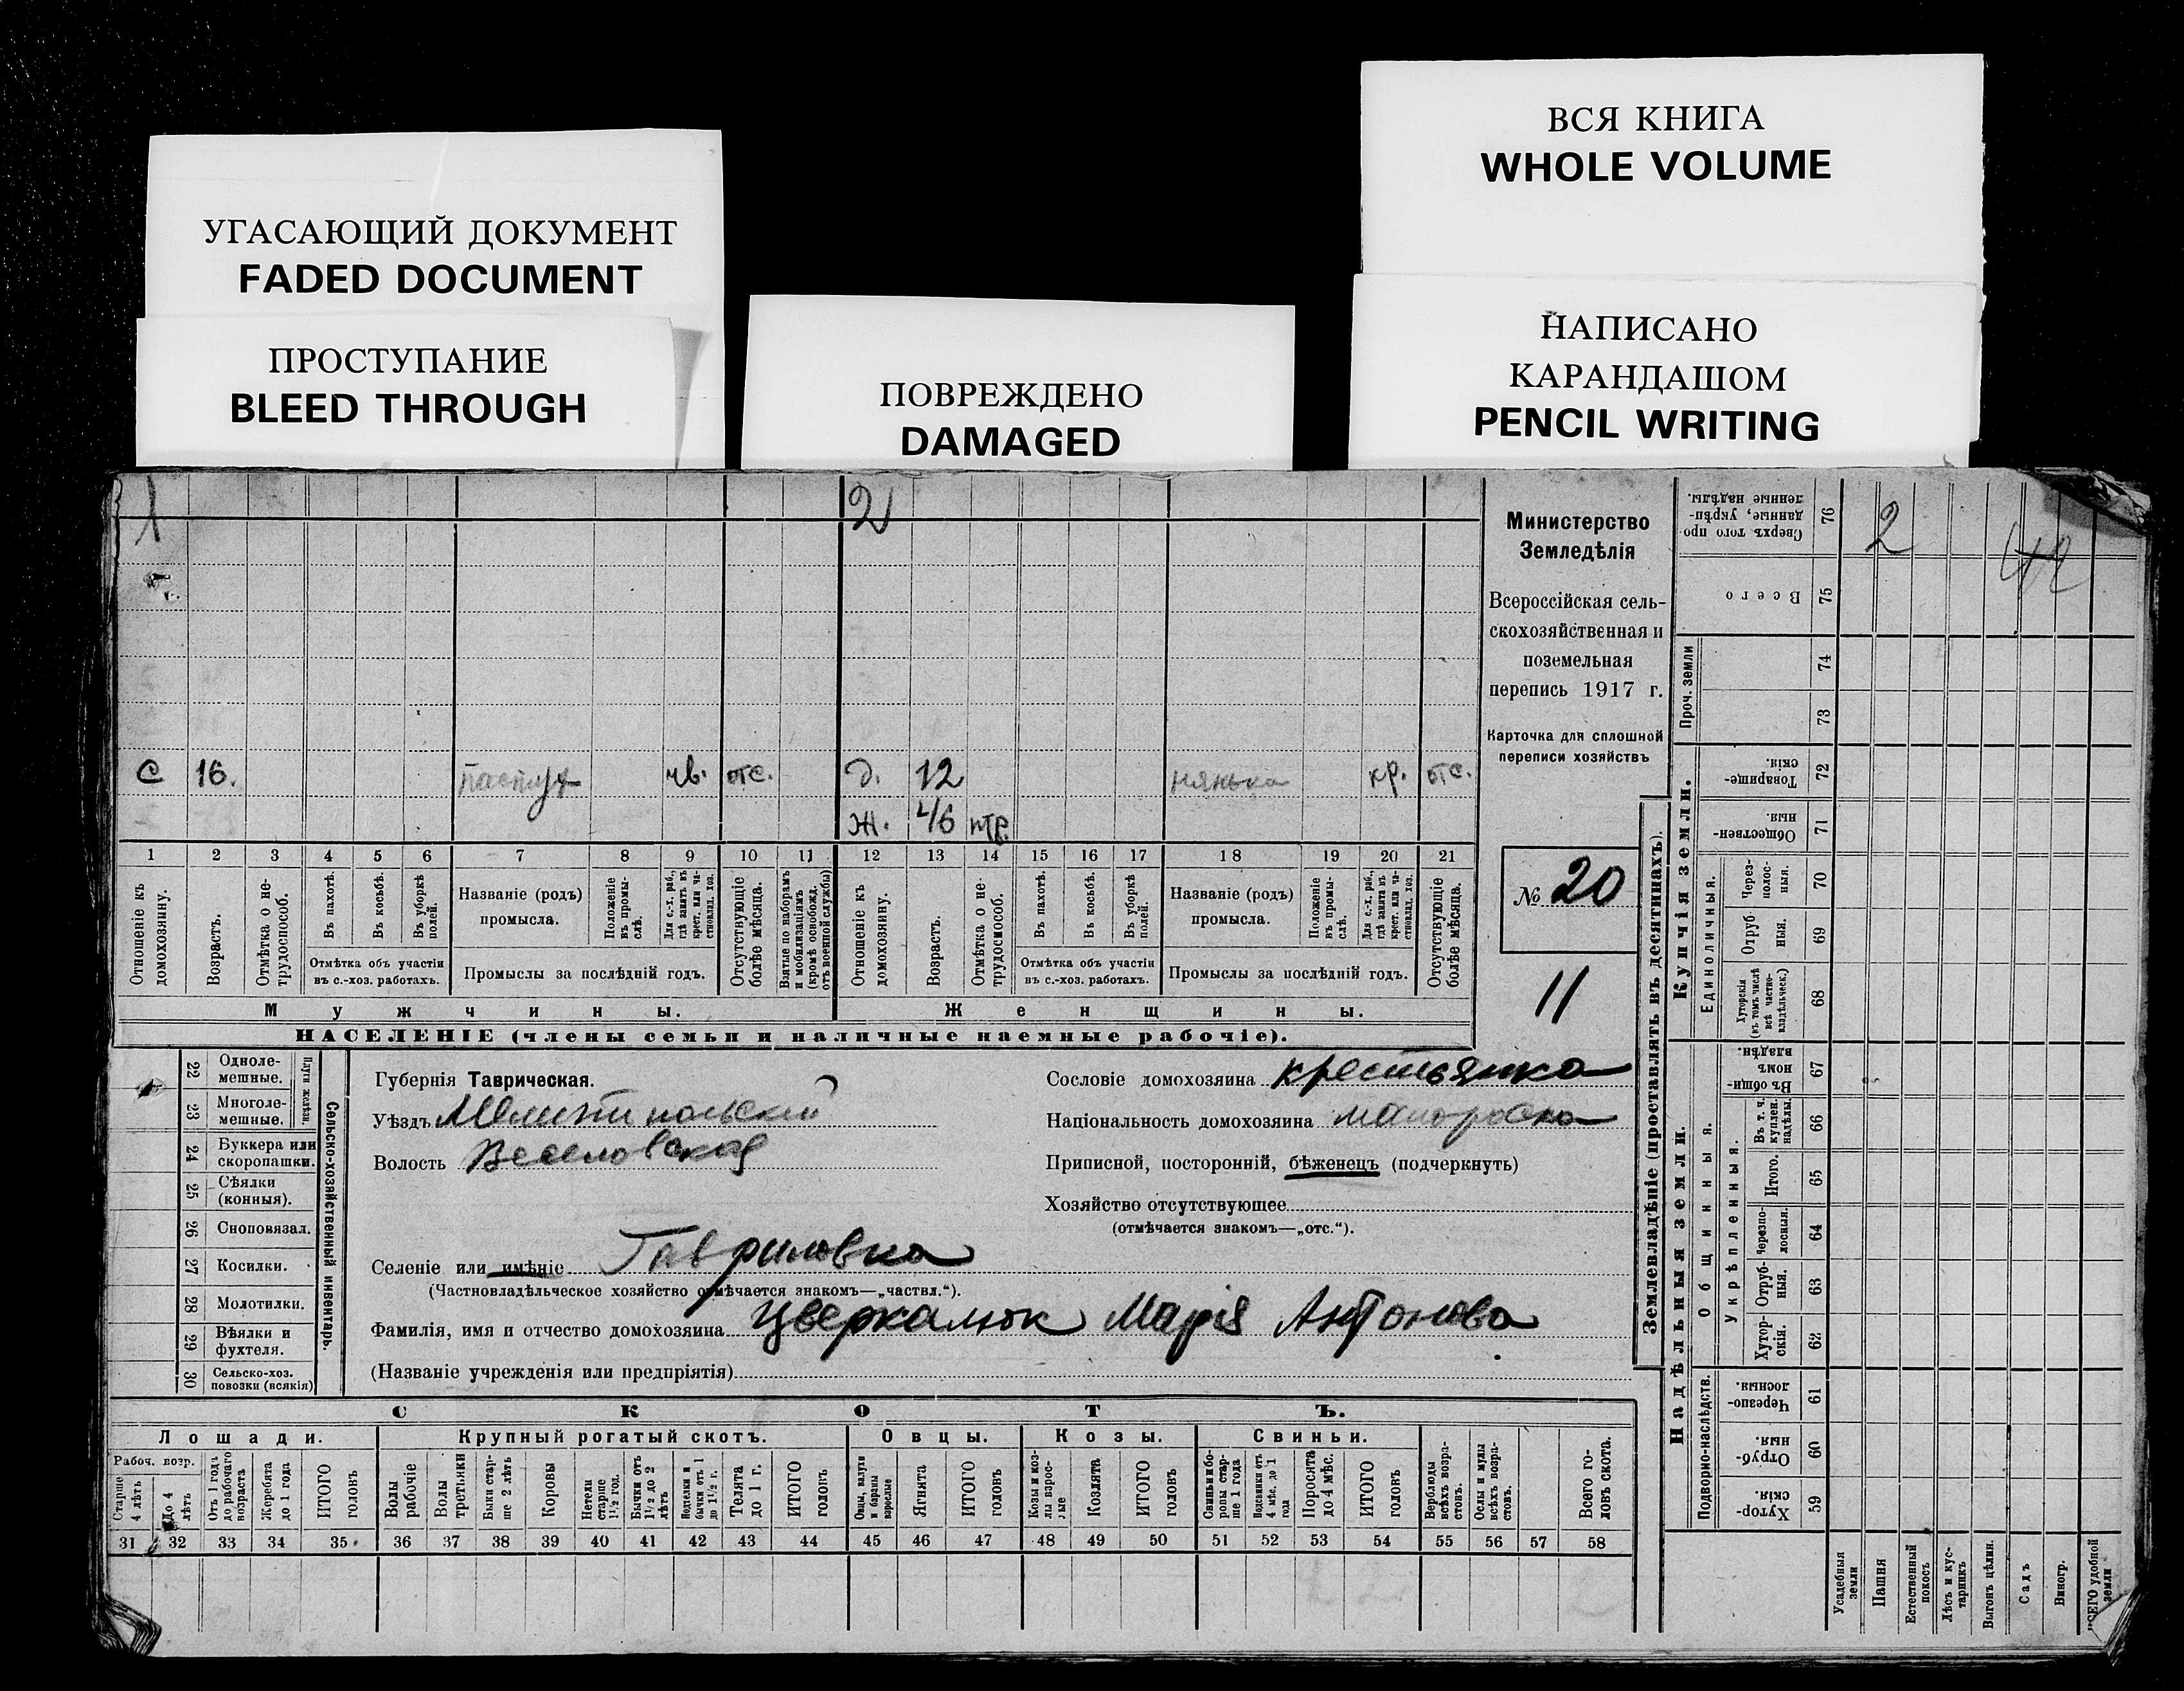 ВСЯ КНИГА
WHOLE VOLUME
УГАСАЮЩИЙ ДОКУМЕНТ
FADED DOCUMENT
ПРОСТУПАНИЕ
BLEED THROUGH
ПОВРЕЖДЕНО
DAMAGED
НАПИСАНО
КАРАНДАШОМ
PENCIL WRITING
1
2
с 16. пастух чв. отс. д. 12 нянька кр. отс.
ж. 46 нтр.
1 2 3 4 5 6 7 8 9 10 11 12 13 14 15 16 17 18 19 20 21
Отношеніе къ домохозяину.
Возрастъ.
Отмѣтка о не-трудоспособ.
Въ пахотѣ.
Въ косьбѣ.
Въ уборкѣ полей.
Отмѣтка объ участіи
въ с.-хоз. работахъ.
Названіе (родъ)
промысла.
Положеніе въ промы-слѣ.
Для с.-х. раб., гдѣ занятъ въ крест. или ча-стновлад. хоз.
Промыслы за послѣдній годъ.
Отсутствующіе болѣе мѣсяца.
Взятые по наборамъ и мобилизаціямъ (кромѣ освобожд. отъ военной службы)
Отношеніе къ домохозяину.
Возрастъ.
Отмѣтка о не-трудоспособ.
Въ пахотѣ.
Въ косьбѣ.
Въ уборкѣ полей.
Отмѣтка объ участіи
въ с.-хоз. работахъ.
Названіе (родъ)
промысла.
Положеніе въ промы-слѣ.
Для с.-х. раб., гдѣ занята въ крест. или ча-стновлад. хоз.
Промыслы за послѣдній годъ.
Отсутствующіе болѣе мѣсяца.
Мужчины.
Женщины.
НАСЕЛЕНІЕ (члены семьи и наличные наемные рабочіе).
Министерство
Земледѣлія
Всероссійская сель-
скохозяйственная и
поземельная
перепись 1917 г.
Карточка для сплошной
переписи хозяйствъ
№ 20
11
22 Одноле-мешные.
23 Многоле-мешные.
Плуги желѣзн.
24 Буккера или скоропашки.
25 Сѣялки (конныя).
26 Сноповязал.
27 Косилки.
28 Молотилки.
29 Вѣялки и фухтеля.
30 Сельско-хоз. повозки (всякія)
Сельско-хозяйственный инвентарь.
Губернія Таврическая.
Уѣздъ Мелитопольскій
Волость Веселовская
Селеніе или имѣніе Гавриловка
(Частновладѣльческое хозяйство отмѣчается знакомъ—„частвл.“).
Фамилія, имя и отчество домохозяина Цверкалюк Марія Антонова
(Названіе учрежденія или предпріятія)
Сословіе домохозяина крестьянка
Національность домохозяина малороска
Приписной, посторонній, бѣженецъ (подчеркнуть)
Хозяйство отсутствующее
(отмѣчается знакомъ—„отс.“).
СКОТЪ.
Лошади. Крупный рогатый скотъ. Овцы. Козы. Свиньи.
Рабоч. возр.
Старше 4 лѣтъ
До 4 лѣтъ
Отъ 1 года до рабочаго возраста
Жеребята до 1 года
ИТОГО головъ
Волы рабочіе
Волы третьяки
Быки стар-ше 2 лѣтъ
Коровы
Нетели старше 1½ год.
Бычки отъ 1½ до 2 лѣтъ
Подтелки и бычки отъ 1 до 1½ г.
Телята до 1 г.
ИТОГО головъ
Овцы, валухи и бараны взрослые
Ягнята
ИТОГО головъ
Козы и коз-лы взрос-лые
Козлята
ИТОГО головъ
Свиньи и бо-ровы стар-ше 1 года
Подсвинки отъ 4 мѣс. до 1 года
Поросята до 4 мѣс.
ИТОГО головъ
Верблюды всѣхъ возра-стовъ.
Ослы и мулы всѣхъ возра-стовъ.
Всего го-ловъ скота.
31 32 33 34 35 36 37 38 39 40 41 42 43 44 45 46 47 48 49 50 51 52 53 54 55 56 57 58
Землевладѣніе (проставлять въ десятинахъ).
Надѣльныя земли.
Купчія земли.
Проч. земли
Подворно-наслѣдств.
Общинныя.
Укрѣпленныя.
Единоличныя.
Сверхъ того про-данные, укрѣп-ленные надѣлы. 76
Всего 75
74
73
Товарище-скія 72
Обществен-ныя. 71
Через-полос-ныя. 70
Отруб-ныя. 69
Хуторскія (въ томъ числѣ всѣ частно-владѣльческ.) 68
Въ общин-номъ владѣн. 67
Въ т. ч. куплен. надѣлы. 66
Итого. 65
Черезпо-лосныя. 64
Отруб-ныя. 63
Хутор-скія. 62
Черезпо-лосныя. 61
Отруб-ныя. 60
Хутор-скія. 59
2
42
Усадебныя земли
Пашня
Естественный покосъ
Лѣсъ и кус-тарникъ
Выгонъ цѣлин.
Садъ
Виногр.
ВСЕГО удобной земли